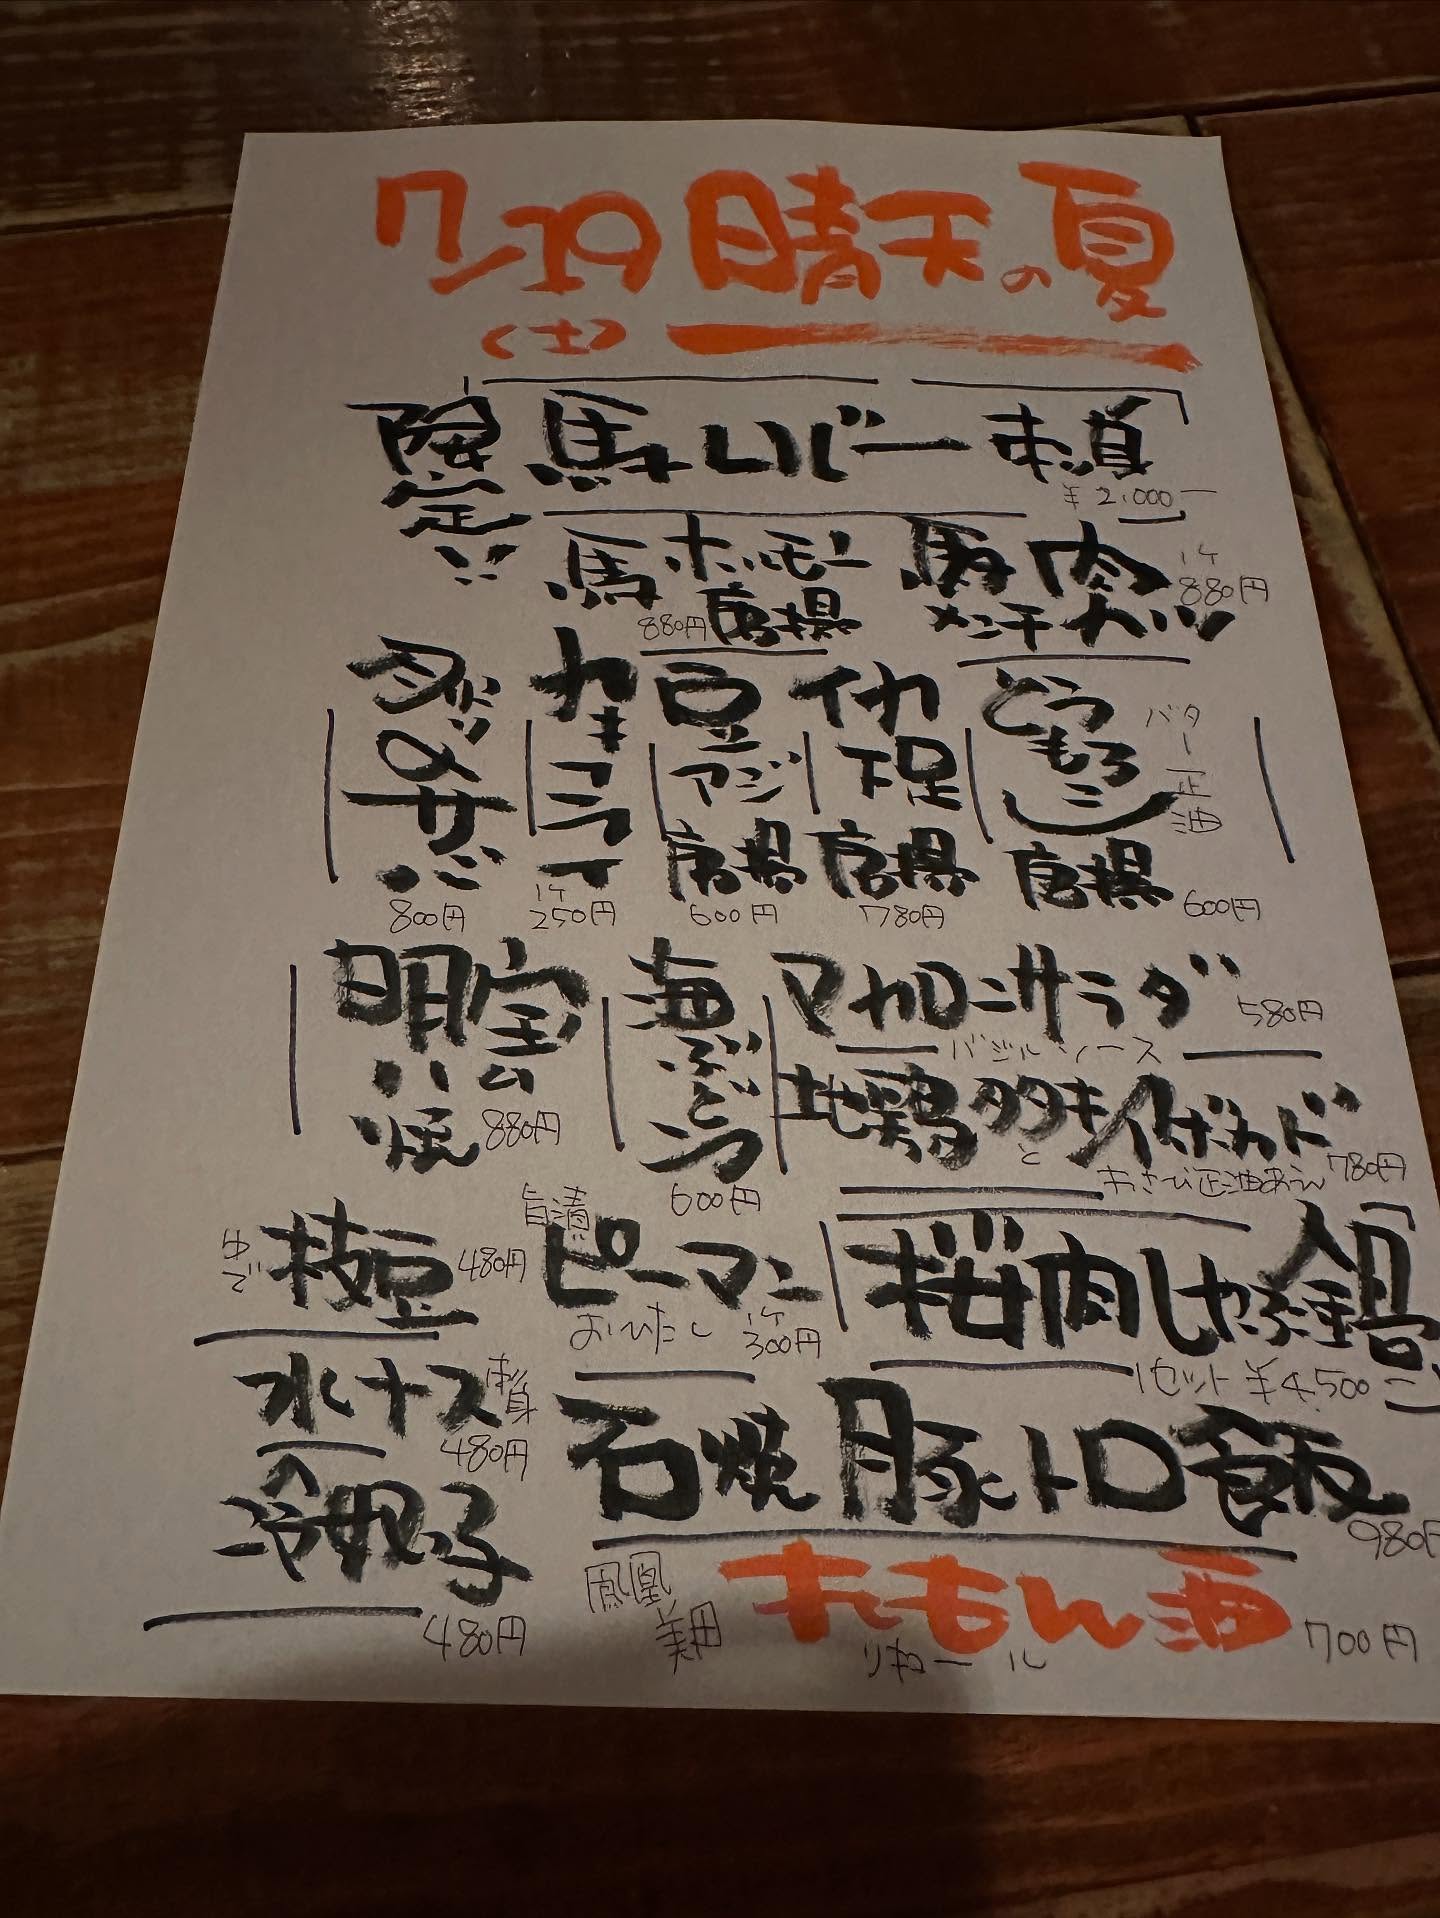 7/19 晴天の夏
(土)
限定!! 馬レバー刺身
¥2,000-
馬ホルモン唐揚
880円
馬肉メンチカツ
1ケ
880円
炙〆サバ
800円
カキフライ
1ケ
250円
豆アジ唐揚
600円
イカ下足唐揚
780円
とうもろこし唐揚
バター正油
600円
明宝ハム焼
880円
海ぶどう
600円
マカロニサラダ
580円
バジルソース
地鶏タタキとアボカド
わさび正油あえ
780円
ゆで枝豆
480円
旨漬ピーマン
おひたし
1ケ
300円
「桜肉しゃぶ鍋」
1セット ¥4,500
水ナス刺身
480円
石焼豚トロ飯
980円
冷奴子
480円
鳳凰美田
れもん酒
リキュール
700円